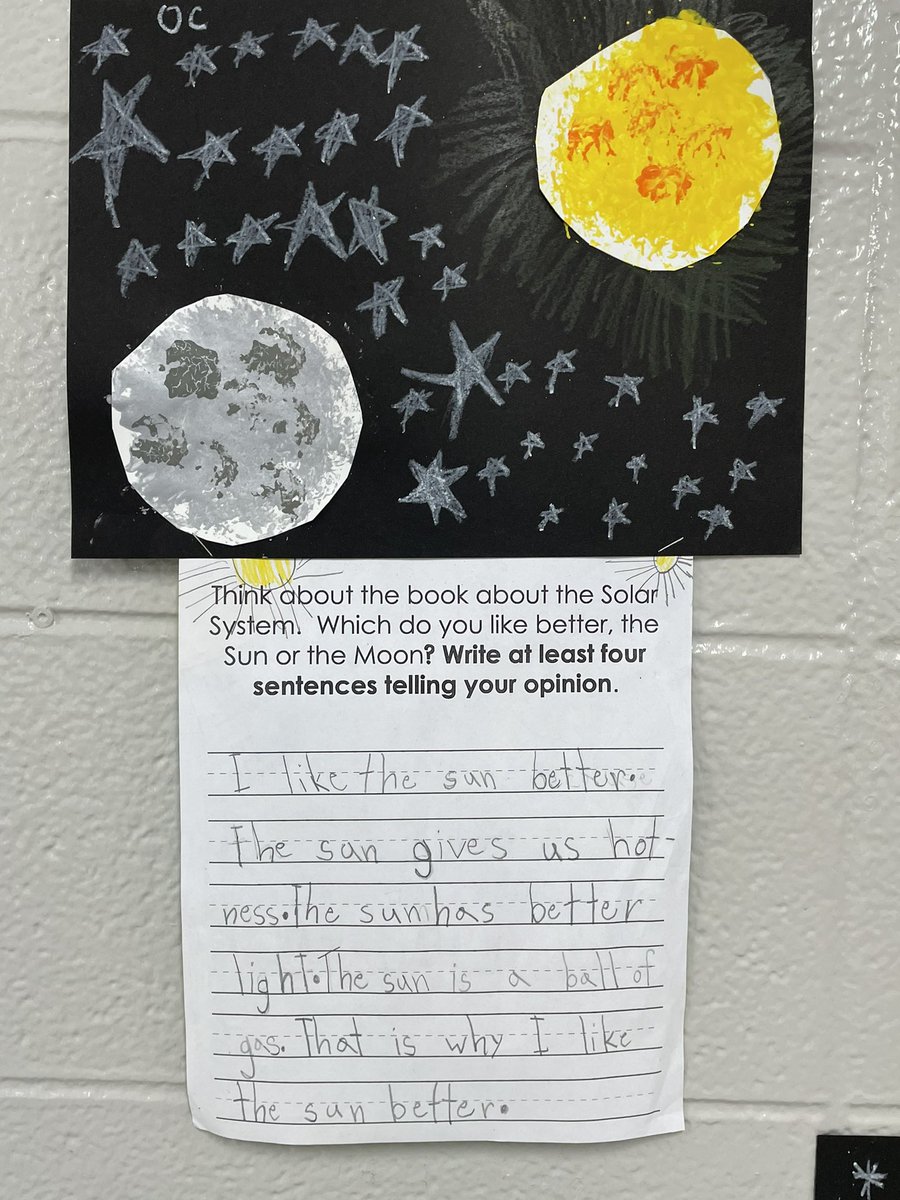 OC
Think about the book about the Solar
System. Which do you like better, the
Sun or the Moon? Write at least four
sentences telling your opinion.
I like the sun better.
The sun gives us hot-
ness. The sun has better
light. The sun is a ball of
gas. That is why I like
the sun better.